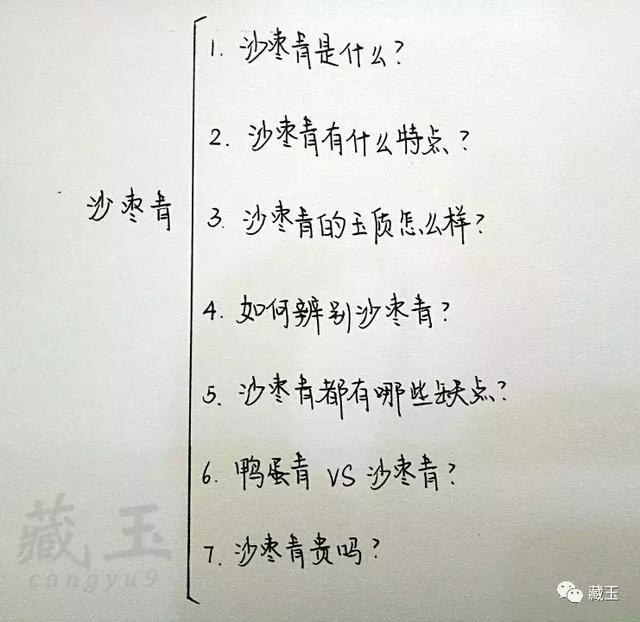 1. 沙枣青是什么?
2. 沙枣青有什么特点?
沙枣青
3. 沙枣青的玉质怎么样?
4. 如何辨别沙枣青?
5. 沙枣青都有哪些缺点?
6. 鸭蛋青 VS 沙枣青?
7. 沙枣青贵吗?
藏玉
cangyu9
藏玉